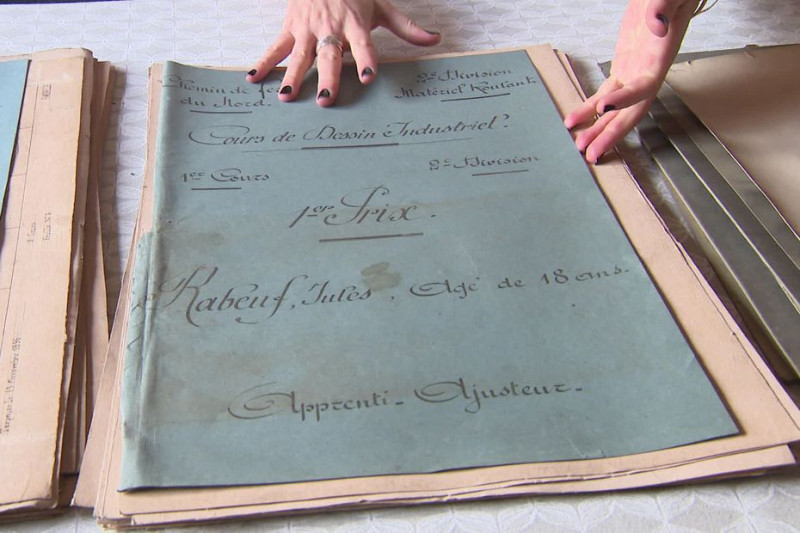 Chemin de fer
du Nord.
2e Division
Matériel Roulant
Cours de Dessin Industriel.
1er Cours
2e Division
1er Prix.
Rabeuf, Jules, Agé de 18 ans.
Apprenti-Ajusteur-